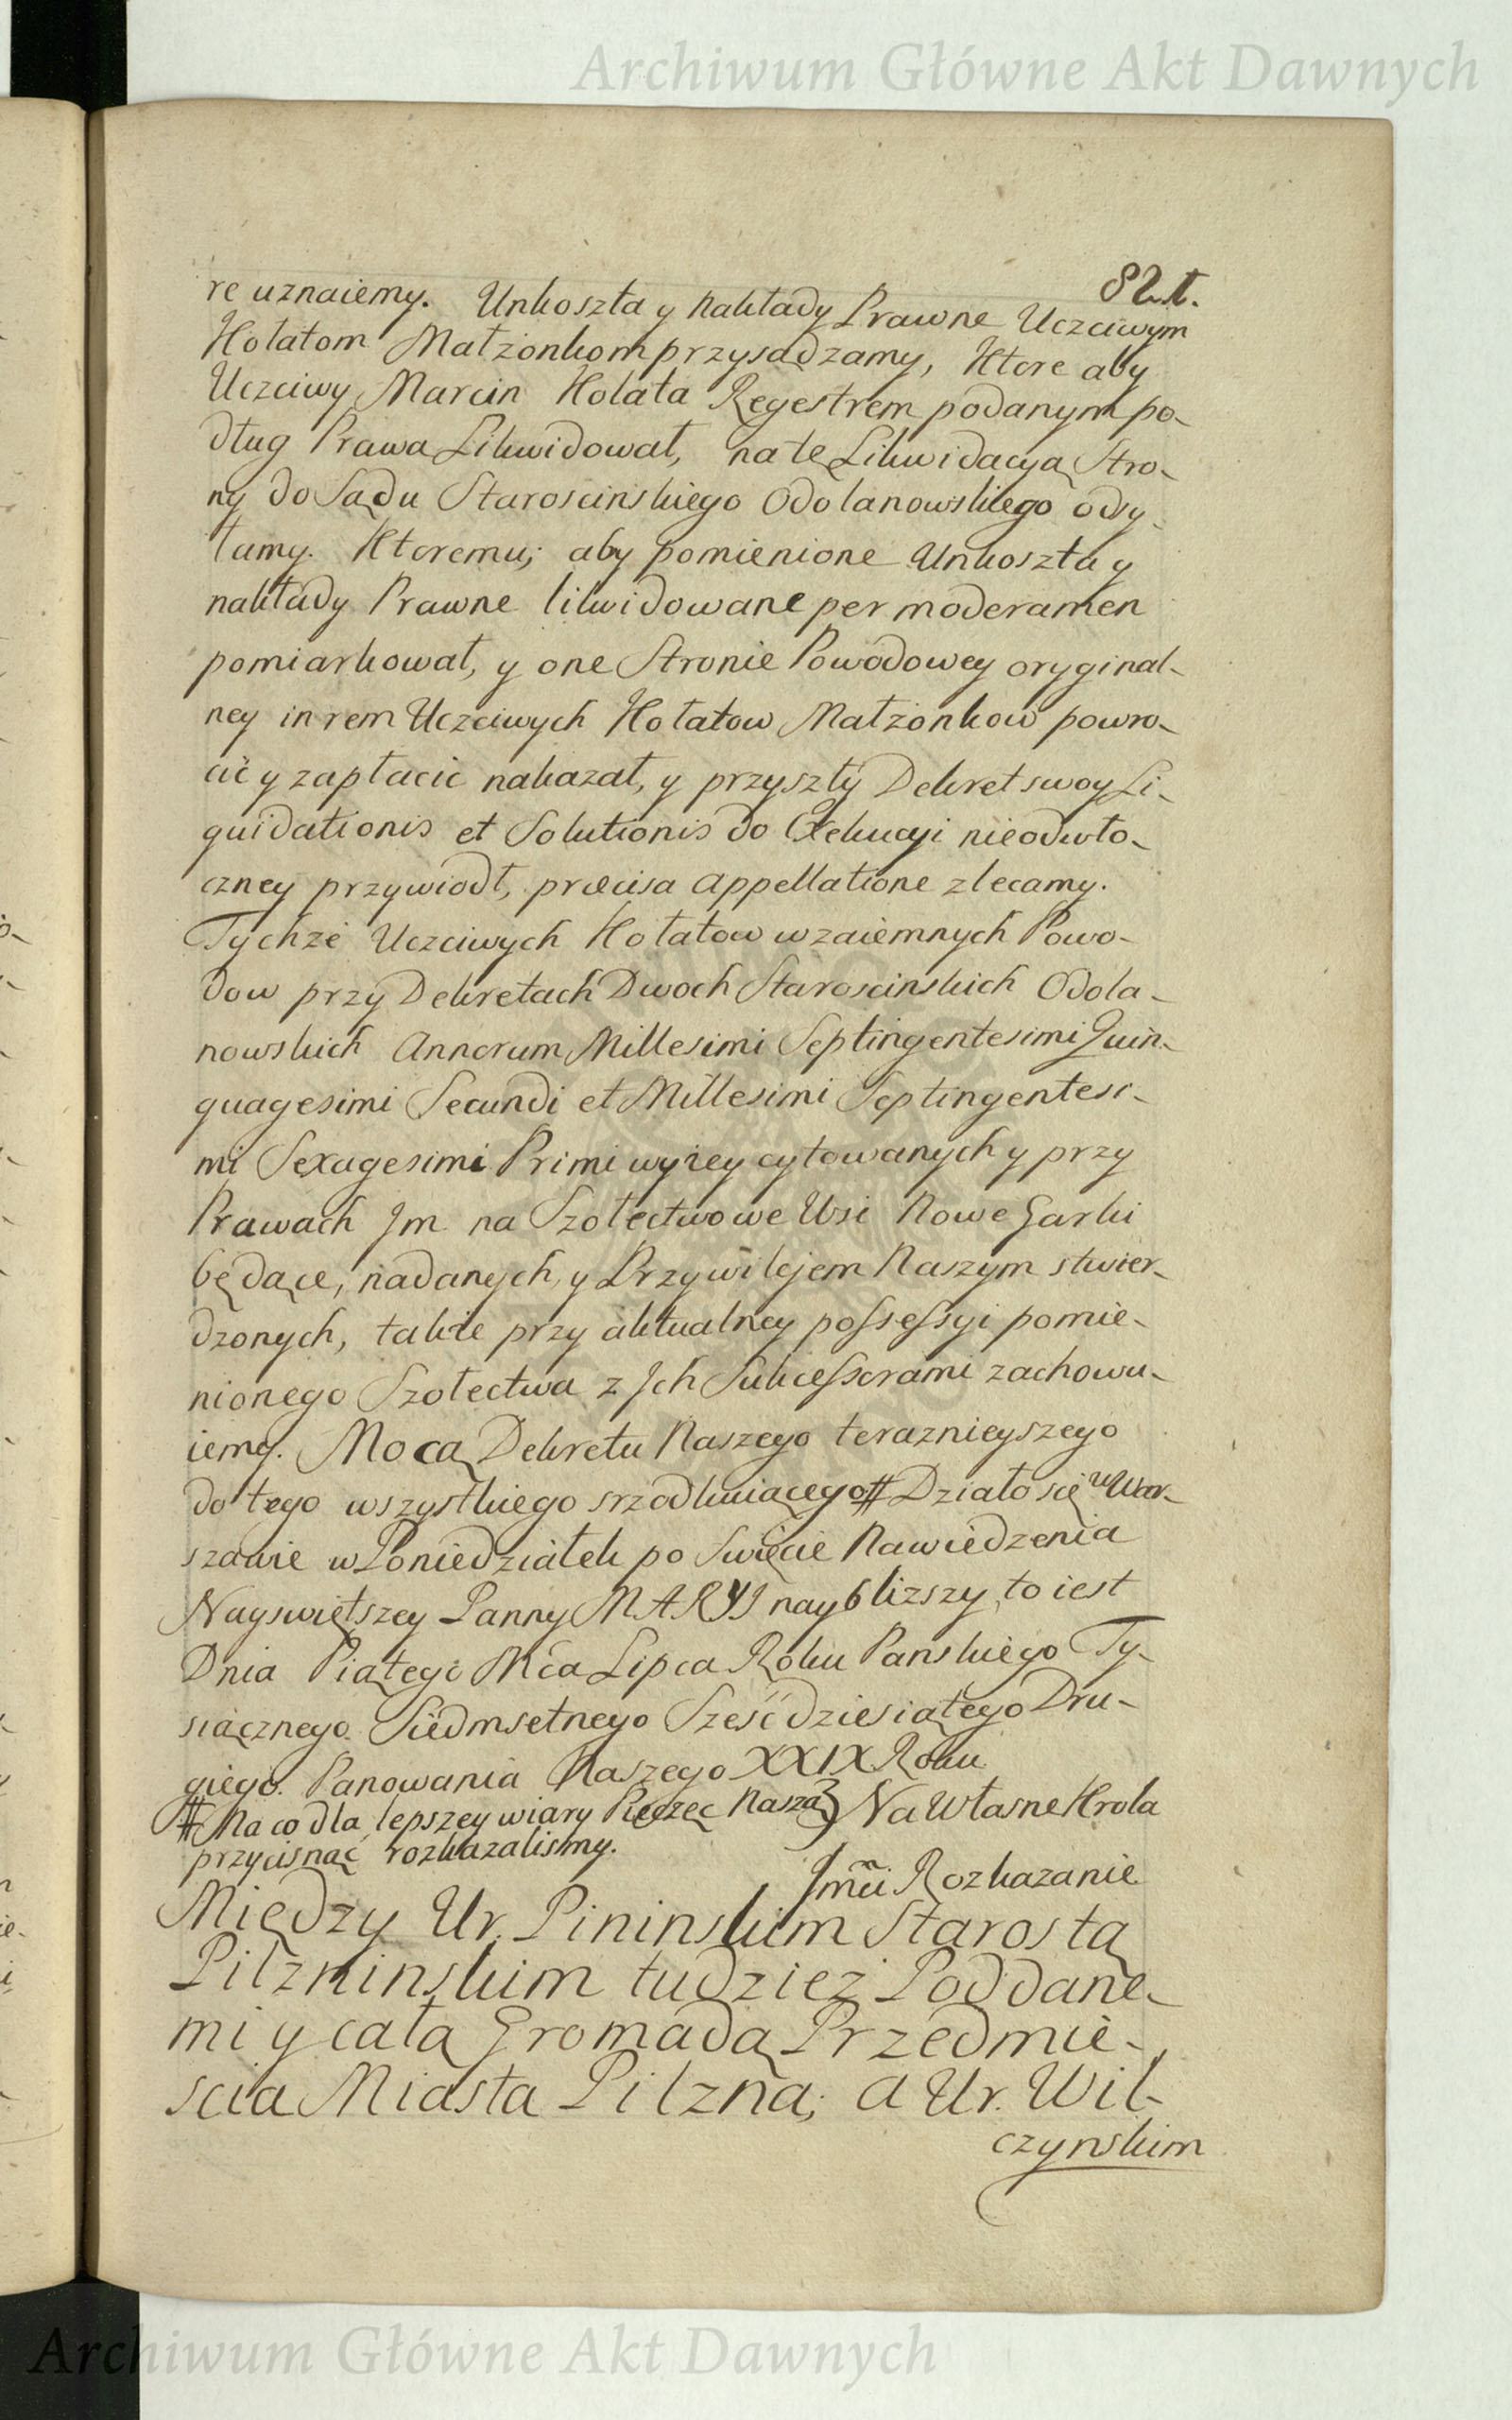 Archiwum Główne Akt Dawnych
821.
re uznaiemy. Unkoszta y nakłady Prawne Uczciwym
Hołatom Małżonkom przysądzamy, Ktore aby
Uczciwy Marcin Holata Regestrem podanym po-
dług Prawa Likwidował, na tę Likwidacyą Stro-
ny do Sądu Staroscinskiego Odolanowskiego odsy-
łamy. Ktoremu; aby pomienione Unkoszta y
nakłady Prawne likwidowane per moderamen
pomiarkował, y one Stronie Powodowey oryginal-
ney in rem Uczciwych Hołatow Małżonkow powro-
cić y zapłacic nakazał, y przyszły Dekret swoy Li-
quidationis et Solutionis do Exekucyi nieodwło-
czney przywiodł, præcisa Appellatione zlecamy.
Tychże Uczciwych Hołatow wzaiemnych Powo-
dow przy Dekretach Dwoch Staroscinskich Odola-
nowskich Annorum Millesimi Septingentesimi Quin-
quagesimi Secundi et Millesimi Septingentesi-
mi Sexagesimi Primi wyżey cytowanych y przy
Prawach Jm na Szołectwo we Wsi Nowe Garki
będące, nadanych, y Przywilejem Naszym stwier-
dzonych, także przy aktualney possessyi pomie-
nionego Szołectwa z Jch Sukcessorami zachowu-
iemy. Mocą Dekretu Naszego teraznieyszego
do tego wszystkiego srzodkuiącego # Działo się w War-
szawie w Poniedziałek po Święcie Nawiedzenia
Nayswiętszey Panny MARYI naybliższy, to iest
Dnia Piątego Mca Lipca Roku Panskiego Ty-
siącznego Siedmsetnego Sześćdziesiątego Dru-
giego. Panowania Naszego XXIX Roku
# Na co dla lepszey wiary Pieczęc Naszą Na Własne Krola
przycisnąć rozkazalismy.
Jmci Rozkazanie
Między Ur. Pininskim Starostą
Pilzninskim tudzież Poddane-
mi y całą Gromadą Przedmie-
scia Miasta Pilzna; a Ur. Wil-
czynskim
Archiwum Główne Akt Dawnych